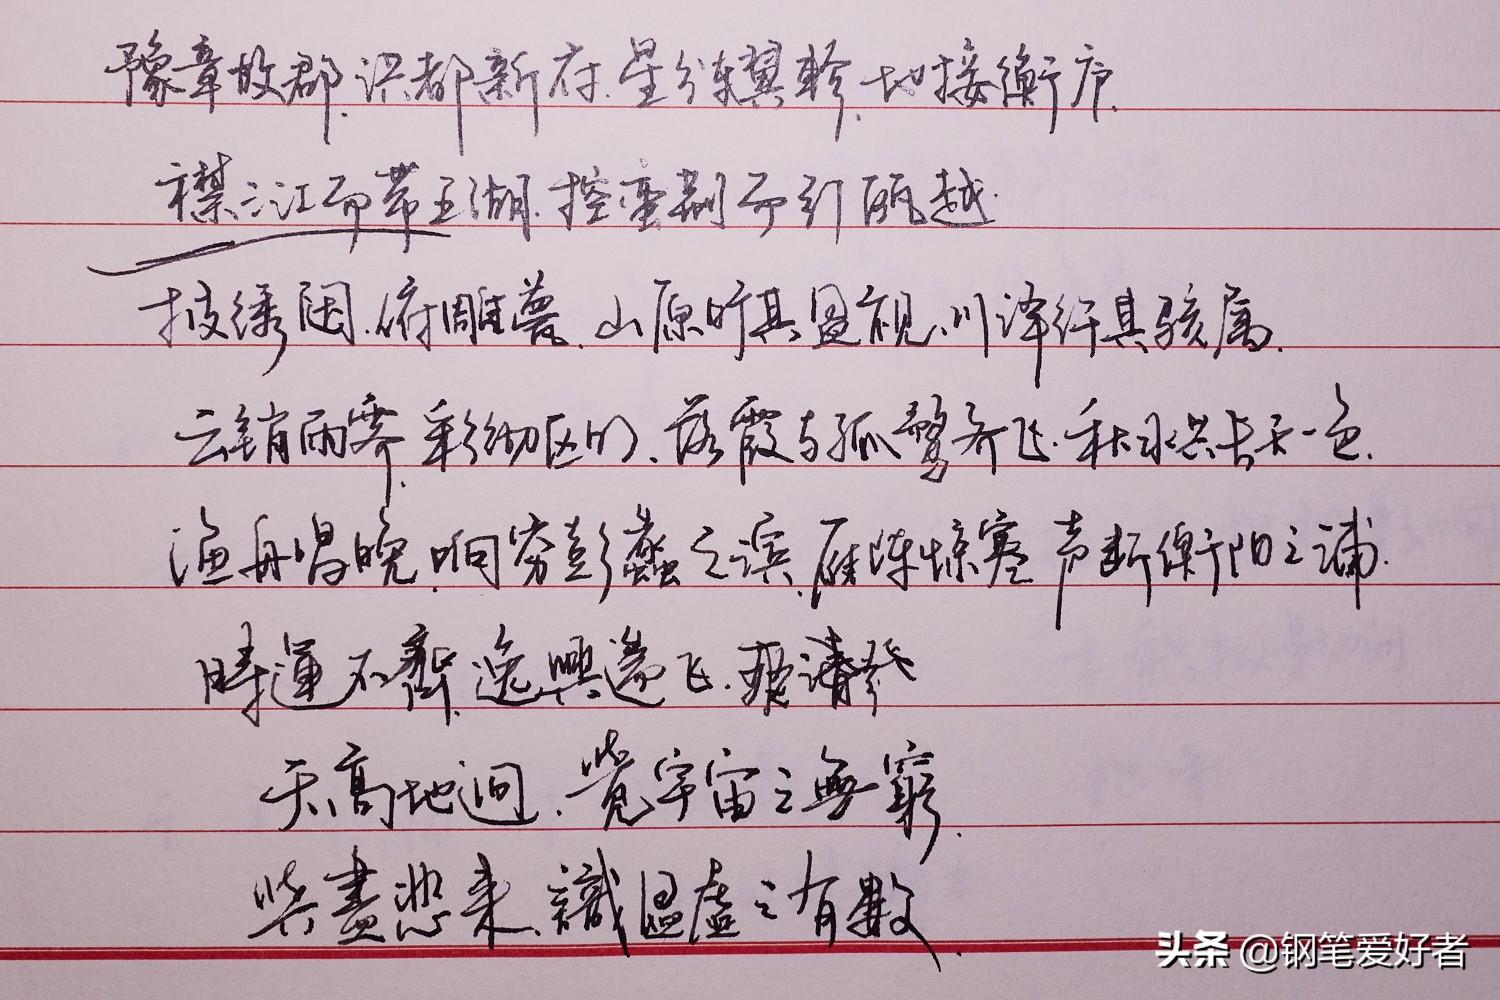 豫章故郡.洪都新府.星分翼轸.地接衡庐.
襟三江而带五湖.控蛮荆而引瓯越.
披绣闼.俯雕甍.山原旷其盈视.川泽纡其骇属.
云销雨霁.彩彻区明.落霞与孤鹜齐飞.秋水共长天一色.
渔舟唱晚.响穷彭蠡之滨.雁阵惊寒.声断衡阳之浦.
時運不齊.逸興遄飞.爽清發
天高地迥.覺宇宙之無窮.
興盡悲来.識盈虚之有數.
头条 @钢笔爱好者